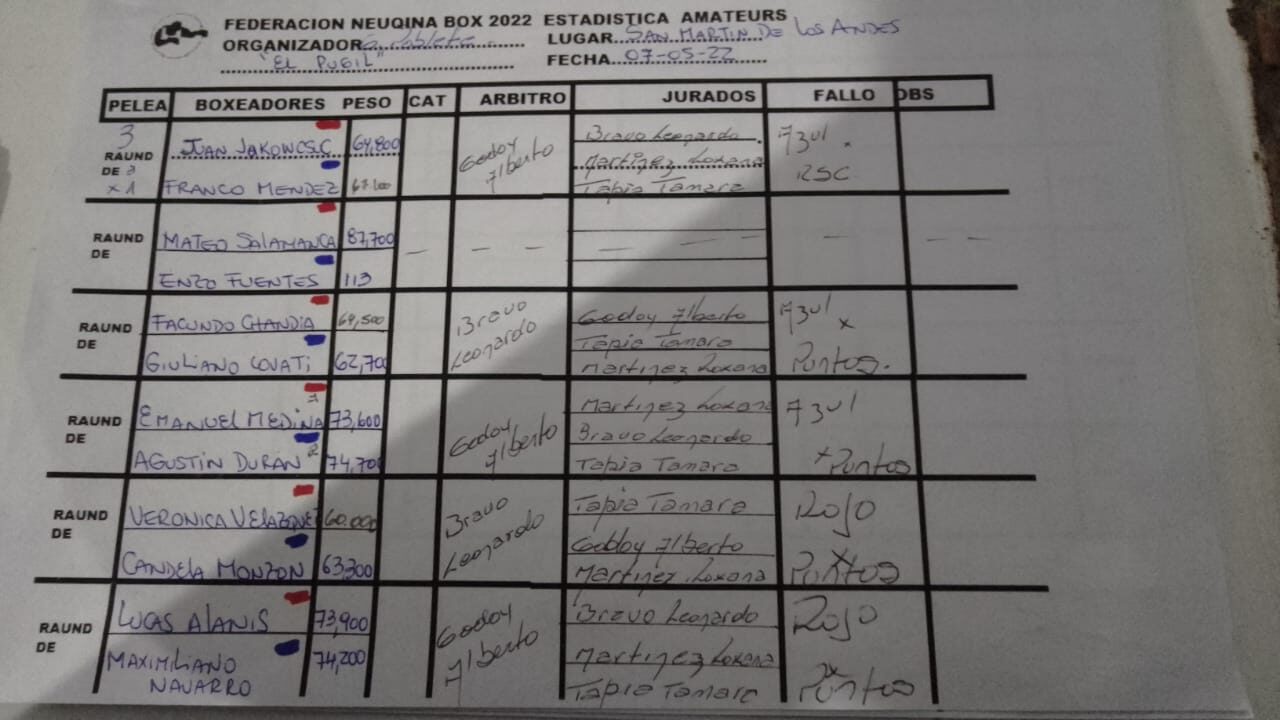 FEDERACION NEUQINA BOX 2022 ESTADISTICA AMATEURS
ORGANIZADOR G. Poblete LUGAR SAN MARTIN DE LOS ANDES
"EL PUGIL" FECHA 07-05-22
PELEA BOXEADORES PESO CAT ARBITRO JURADOS FALLO OBS
3
RAUND
DE 3
x 1
JUAN 64,800
FRANCO MENDEZ
Godoy
Alberto
Bravo Leonardo
Martinez Roxana
Tapia Tamara
Azul
RSC
RAUND
DE
MATEO SALAMANCA 87,700
ENZO FUENTES 113
— — — — — — — — — —
RAUND
DE
FACUNDO CHANDIA 64,500
GIULIANO COVATI 62,700
Bravo
Leonardo
Godoy Alberto
Tapia Tamara
Martinez Roxana
Azul
x
Puntos.
RAUND
DE
EMANUEL MEDINA 1 73,600
AGUSTIN DURAN 2 74,700
Godoy
Alberto
Martinez Roxana
Bravo Leonardo
Tapia Tamara
Azul
x Puntos
RAUND
DE
VERONICA VELAZQUEZ 60.000
CANDELA MONZON 63,300
Bravo
Leonardo
Tapia Tamara
Godoy Alberto
Martinez Roxana
Rojo
x
Puntos
RAUND
DE
LUCAS ALANIS 73,900
MAXIMILIANO 74,200
NAVARRO
Godoy
Alberto
Bravo Leonardo
Martinez Roxana
Tapia Tamara
Rojo
x
Puntos